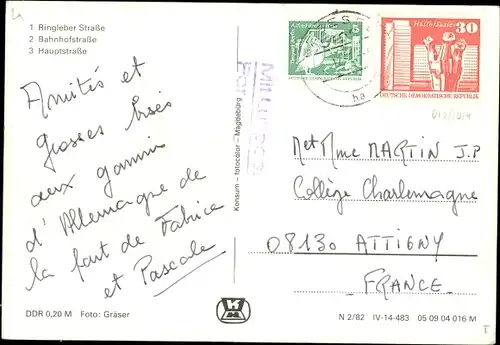 1 Ringleber Straße
2 Bahnhofstraße
3 Hauptstraße
Amitiés et
grosses bises
aux gamins
d'Allemagne de
la part de Fabrice
et Pascale
DDR 0,20 M Foto: Gräser
Konsum – fotocolor – Magdeburg
5
DEUTSCHE DEMOKRATISCHE REPUBLIK
30
DEUTSCHE DEMOKRATISCHE REPUBLIK
M et Mme MARTIN J.P
Collège Charlemagne
08130 ATTIGNY
FRANCE
N 2/82 IV-14-483 05 09 04 016 M